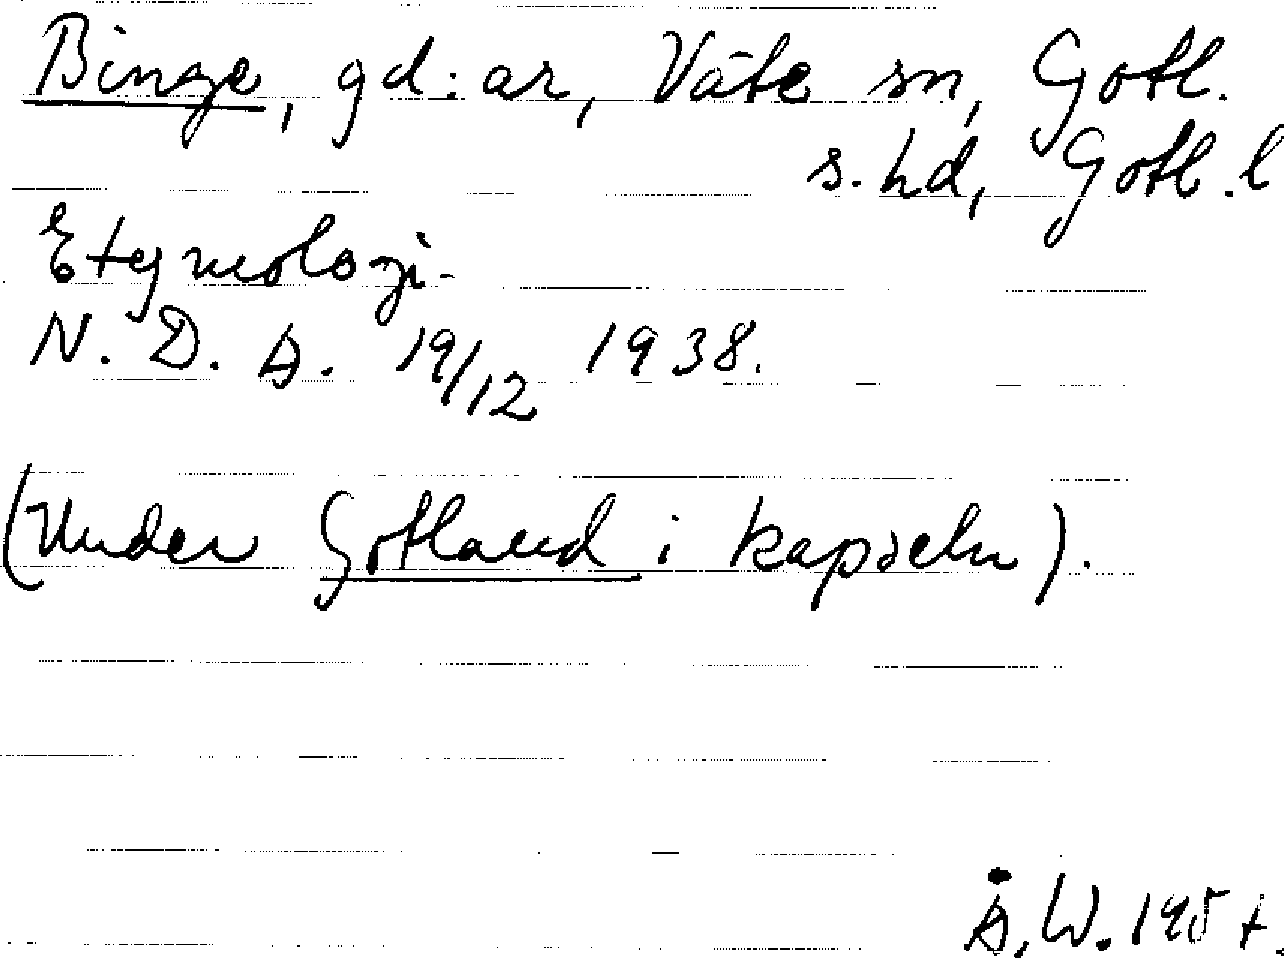 Binge, gd:ar, Väte sn, Gotl.
s. hd, Gotl. l
Etymologi.
N. D. A. 19/12 1938.
(Under Gotland i kapseln).
Å. W.